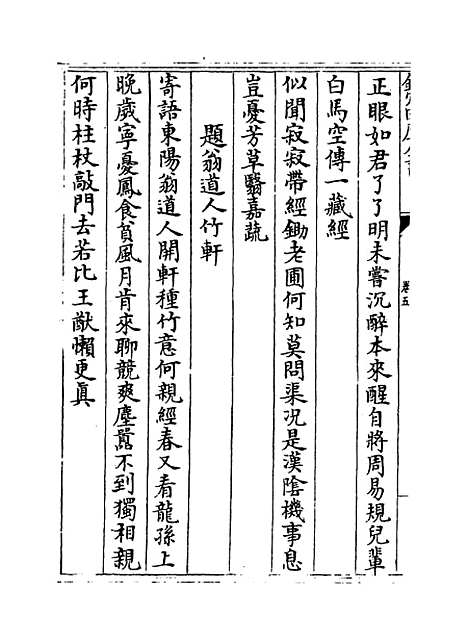 欽定四庫全書
卷五
正眼如君了了明未嘗沉醉本來醒自將周易規兒輩
白馬空傳一藏經
似聞寂寂帶經鋤老圃何知莫問渠况是漢陰機事息
豈憂芳草翳嘉蔬
題翁道人竹軒
寄語東陽翁道人開軒種竹意何親經春又看龍孫上
晚歲寧憂鳳食貧風月肯來聊競爽塵囂不到獨相親
何時柱杖敲門去若比王猷懶更眞